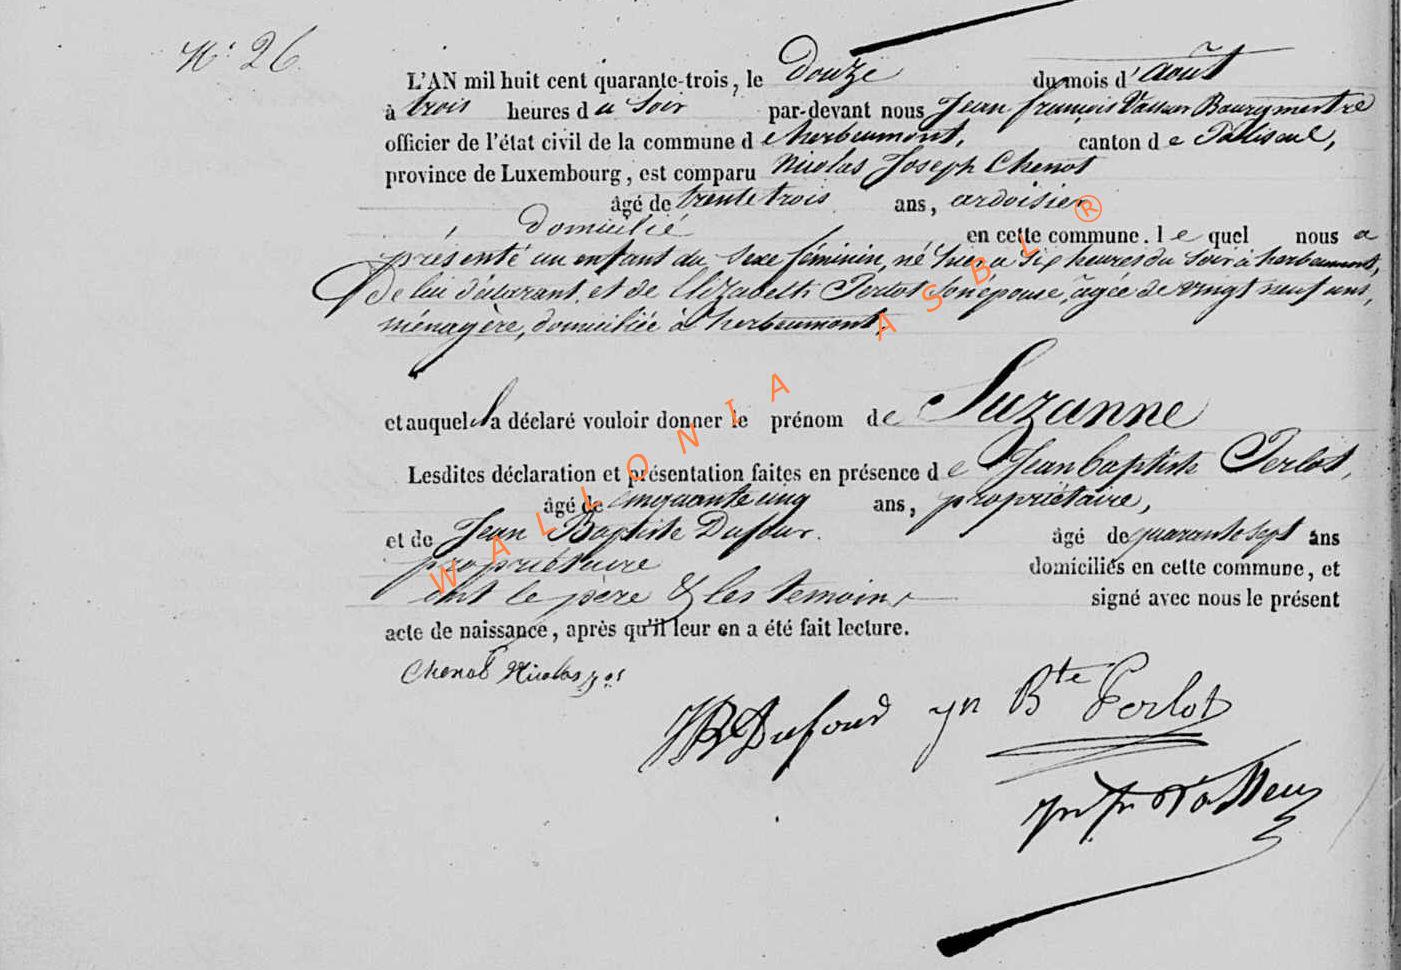 N° 26
L'AN mil huit cent quarante-trois, le douze du mois d'août
à trois heures du soir par-devant nous Jean françois Bourgmestre
officier de l'état civil de la commune de herbeumont, canton de Paliseul,
province de Luxembourg, est comparu Nicolas Joseph Chenot
âgé de trente trois ans, ardoisier
domicilié en cette commune. lequel nous a
présenté un enfant du sexe féminin, né hier a six heures du soir à herbeumont,
De lui déclarant, et de Elizabeth Perlot son épouse, agée de vingt neuf ans,
ménagère, domiciliée à herbeumont,
et auquel il a déclaré vouloir donner le prénom de Suzanne
Lesdites déclaration et présentation faites en présence de Jean baptiste Perlot,
âgé de cinquante cinq ans, propriétaire,
et de Jean Baptiste Dufour. âgé de quarante sept ans
propriétaire domiciliés en cette commune, et
ont le père & les temoins signé avec nous le présent
acte de naissance, après qu'il leur en a été fait lecture.
Chenot Nicolas Jos
JB Dufour jn Bte Perlot
WALLONIA ASBL ®